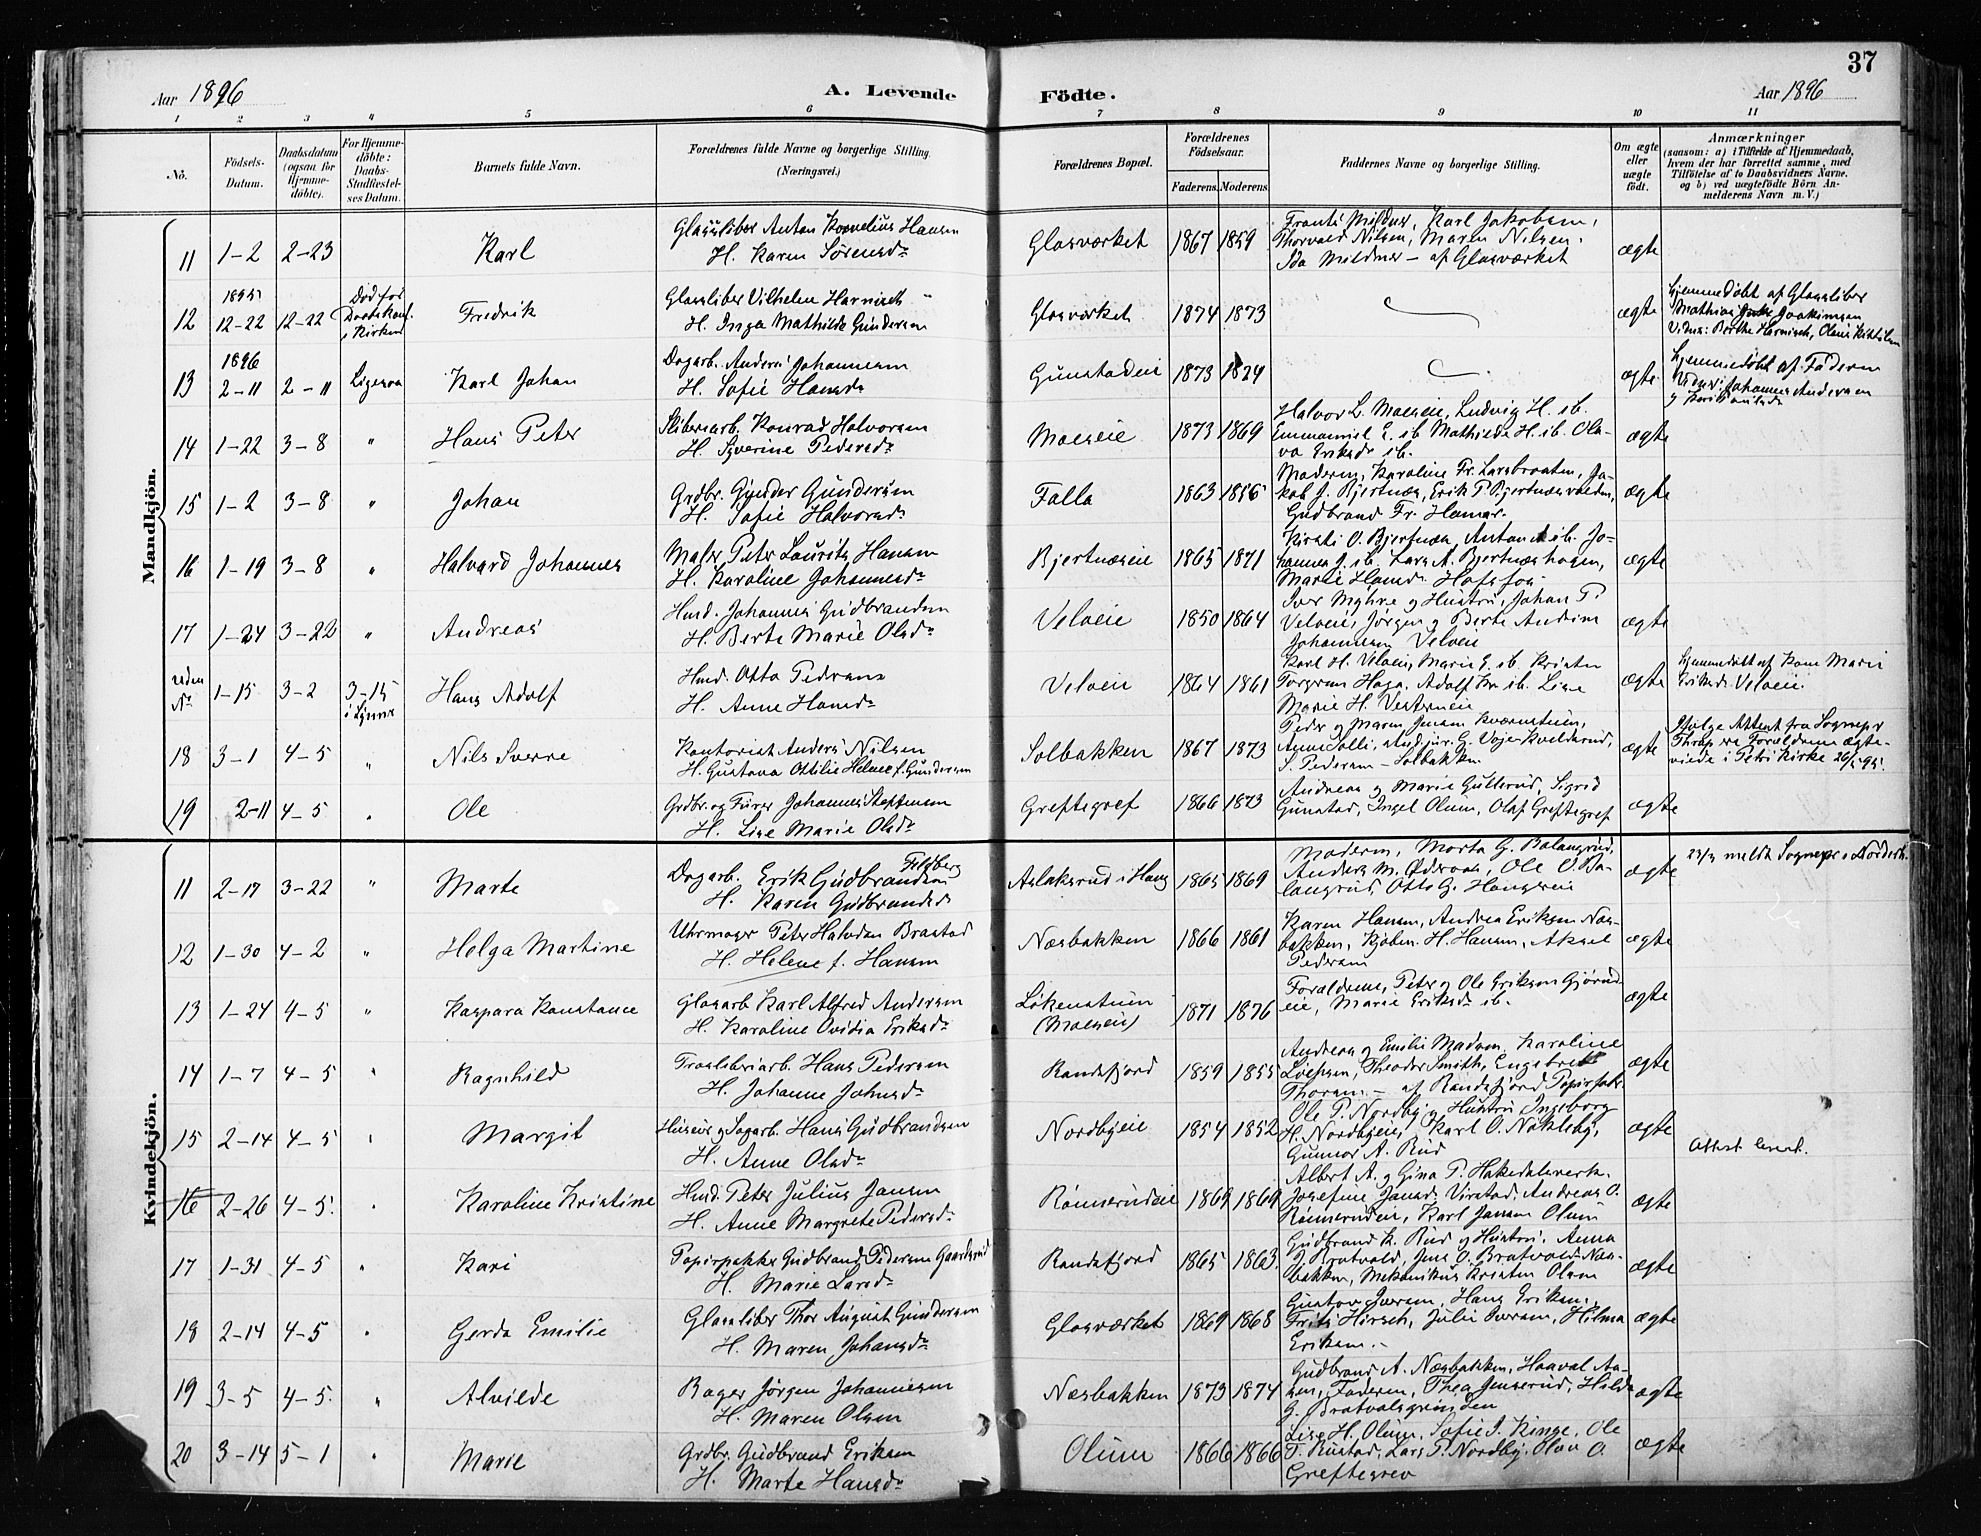 37
Aar 1896
A. Levende Födte.
Aar 1896
1 2 3 4 5 6 7 8 9 10 11
No.
Födsels-Datum.
Daabsdatum (ogsaa for Hjemme-döbte).
For Hjemme-döbte: Daabs-Stadfæstel-ses Datum.
Barnets fulde Navn.
Forældrenes fulde Navne og borgerlige Stilling. (Næringsvei.)
Forældrenes Bopæl.
Forældrenes Födselsaar.
Faderens. Moderens.
Faddernes Navne og borgerlige Stilling.
Om ægte eller uægte födt.
Anmærkninger
(saasom: a) i Tilfælde af Hjemmedaab, hvem der har forrettet samme, med Tilföielse af to Daabsvidners Navne, og b) ved uægtefödte Börn An-melderens Navn m.V.)
Mandkjön.
11 1-2 2-23 Karl
Glassliber Anton Kornelius Hansen
H. Karen Sørensdr
Glasværket 1867 1859
Thorvald Nilsen, Maren Nilsen,
Ida Mildner – af Glasværket
ægte
12 1895 12-22 12-22 Død før Daabskonf. i Kirken Fredrik
Glassliber Vilhelm Harnisch
H. Inga Mathilde Gundersen
Glasværket 1874 1873 ægte
Hjemmedøbt af Glassliber
Mathias Joakimsen
Vidner: Berthe Harnisch,
13 1896 2-11 2-11 Ligesaa Karl Johan
Dagarb. Anders Johannesen
H. Sofie Hansdr
Gunstadeie 1873 1874 ægte
Hjemmedøbt af Faderen
Vidner: Johannes Andersen
14 1-22 3-8 " Hans Peter
Sliberiarb. Konrad Halvorsen
H. Syverine Pedersdr
Moeseie 1873 1869
Halvor L. Moeseie, Ludvig H. ib.
Emmanuel E. ib. Mathilde H. ib. Ola-
va Eriksdr ib.
ægte
15 1-2 3-8 " Johan
Grdbr. Gunder Gundersen
H. Sofie Halvorsdr
Falla 1863 1856
Moderen, Karoline Fr. Larsbraaten, Ja-
kob J. Bjertnæs, Erik P. Bjertnæsvolden,
Gudbrand Fr. Hamar.
ægte
16 1-19 3-8 " Halvard Johannes
Maler Peter Laurits Hansen
H. Karoline Johannesdr
Bjertnæseie 1865 1871
Kirsti O. Bjertnæs, Anton A. ib. Jo-
hannes J. ib. Lars A. Bjertnæshagen,
Marte Hansdr Hofsfos.
ægte
17 1-24 3-22 " Andreas
Husm. Johannes Gudbrandsen
H. Berte Marie Olsdr
Veloeie 1850 1864
Iver Myhre og Hustru, Johan P.
Veloeie, Jørgen og Berte Andrine
Johannesen Veloeie
ægte
uden No 1-15 3-2 3-15 Hans Adolf
Husm. Otto Pedersen
H. Anne Hansdr
Veloeie 1864 1861
Karl H. Veloeie, Marie E. ib. Kristen
Torgersen Haga, Adolf Kr. ib. Lise
Marie H. Vestreneie
ægte
Hjemmedøbt af Karen Marie
Eriksdr Veloeie
18 3-1 4-5 " Nils Sverre
Kontorist Anders Nilsen
H. Gustava Ottilie Helene f. Gundersen
Solbakken 1867 1873
Peder og Maren Jensen Kværnstuen,
Anne Solli, stud. jur. G. Voje-Kvelderud,
S. Pedersen – Solbakken
ægte
Ifølge Attest fra Sognepr
Thrap ere Forældrene ægte-
viede i Petri Kirke 26/5 95.
19 2-11 4-5 " Ole
Grdbr. og Furer Johannes Steffensen
H. Lise Marie Olsdr
Greftegref 1866 1873
Andreas og Marie Gullerud, Sigrid
Gunstad, Ingel Olum, Olaf Greftegref
ægte
Kvindekjön.
11 2-17 3-22 " Marte
Dagarb. Erik Gudbrandsen Feldberg
H. Karen Gudbrandsdr
Aslaksrud i Haug 1865 1869
Moderen, Marta G. Bolangrud,
Anders M. Øderaa, Ole O. Bo-
langrud, Otto G. Haugseie
ægte
23/3 meldt Sognepr i Norderh.
12 1-30 4-2 " Helga Martine
Uhrmager Peter Halvdan Brastad
H. Helene f. Hansen
Næsbakken 1866 1861
Karen Hansen, Andrea Eriksen Næs-
bakken, Kjøbm. H. Hansen, Aksel
Pedersen
ægte
13 1-24 4-5 " Kaspara Konstance
Glasarb. Karl Alfred Andersen
H. Karoline Ovidia Eriksdr
Løkenstuen (Moeseie) 1871 1876
Forældrene, Peter og Ole Eriksen Gjørud-
eie, Marie Eriksdr ib.
ægte
14 1-7 4-5 " Ragnhild
Træsliberiarb. Hans Pedersen
H. Johanne Johnsdr
Randsfjord 1859 1855
Andreas og Emilie Madsen, Karoline
Theodor Smith, Engebret
Thoresen – af Randsfjord Papirfabr
ægte
15 2-14 4-5 " Margit
Huseier og Sagarb. Hans Gudbrandsen
H. Anne Olsdr
Nordbyeie 1854 1852
Ole P. Nordby og Hustru Ingeborg
H. Nordbyeie, Karl O. Nakleby,
Gunnor A. Rud
ægte
Attest levert.
16 2-26 4-5. " Karoline Kristine
Husm. Peter Julius Jansen
H. Anne Margrete Pedersdr
Rømserudeie 1869 1869
Albert A. og Gina P. Hakedalsverk.
Josefine Jansdr Virstad, Andreas O.
Rømserudeie, Karl Jansen Olum
ægte
17 1-31 4-5 " Kari
Papirpakker Gudbrand Pedersen Gaardsrud
H. Marie Larsdr
Randsfjord 1865 1863.
Gudbrand K. Rud og Hustru, Anna
J. Bratvold, Jens O. Bratvold-Næs-
bakken, Mekanikus Kristen Olsen
ægte
18 2-14 4-5 " Gerda Emilie
Glassliber Thor August Gundersen
H. Maren Johansdr
Glasværket 1869 1868
Gustav Iversen, Hans Eriksen,
Frits Hirsch, Julie Iversen, Hilma
Eriksen. –
ægte
19 3-5 4-5. " Alvilde
Bager Jørgen Johannesen
H. Maren Olsen
Næsbakken 1873 1874
Gudbrand A. Næsbakken, Haaval Aa-
sen, Faderen, Thea Jenserud, Hilda
G. Bratvalsgrinden
ægte
20 3-14 5-1 " Marie
Grdbr. Gudbrand Eriksen
H. Marte Hansdr
Olum 1866 1866
Lise H. Olum, Sofie J. Kinge, Ole
T. Rustad, Lars P. Nordby, Olav O.
Greftegrev
ægte